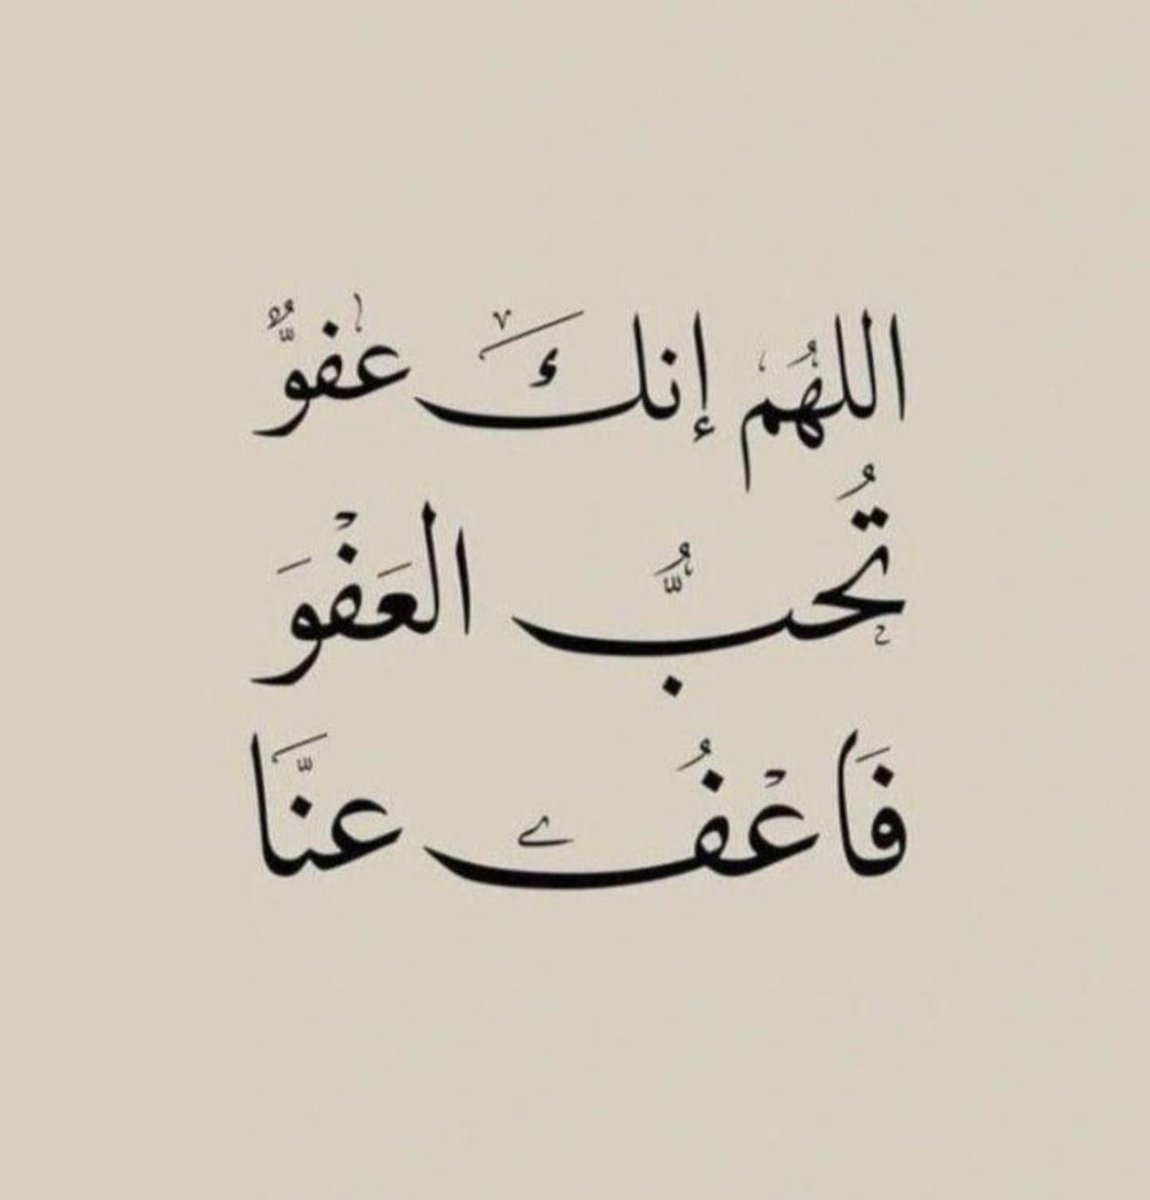 اللهُم إنلكَ عفوٌّ
تُحبُّ العَفْوَ
فَاعْفُ عنَّا